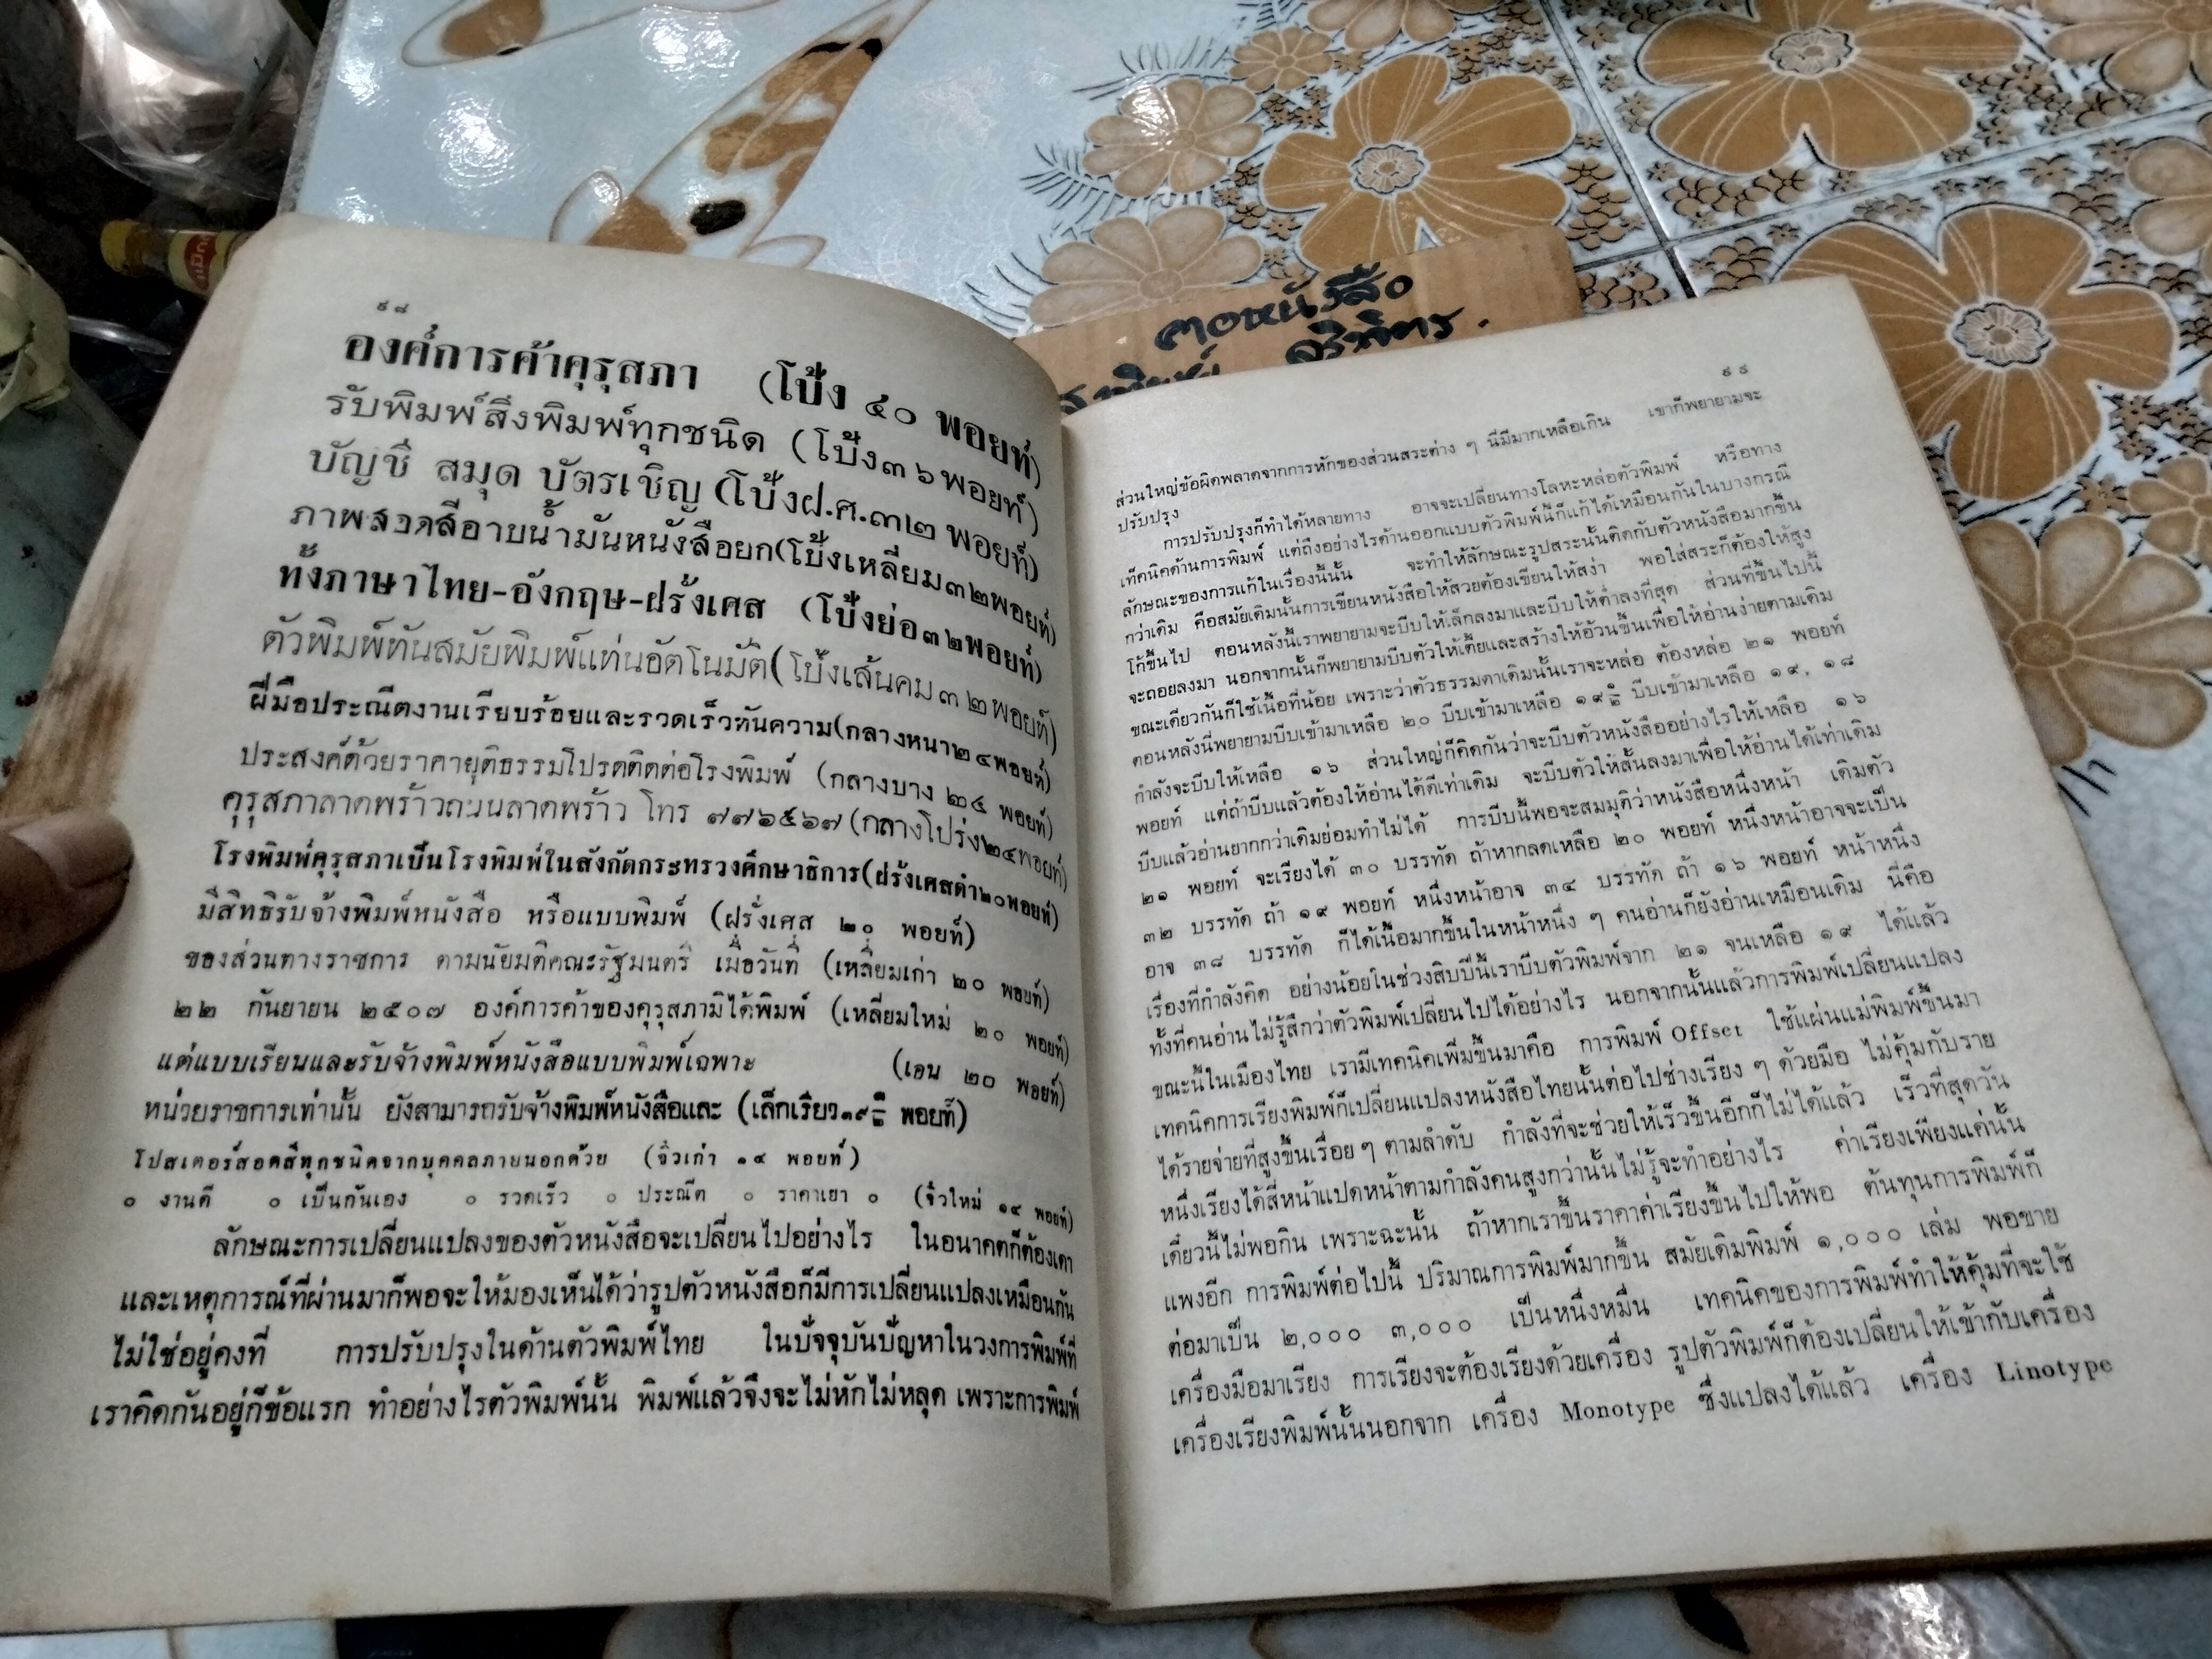 ๙๘
องค์การค้าคุรุสภา (โป้ง ๔๐ พอยท์)
รับพิมพ์สิ่งพิมพ์ทุกชนิด (โป้ง๓๖พอยท์)
บัญชี สมุด บัตรเชิญ (โป้งฝ.ศ.๓๒ พอยท์)
ภาพสอดสีอาบน้ำมันหนังสือยก(โป้งเหลี่ยม๓๒พอยท์)
ทั้งภาษาไทย-อังกฤษ-ฝรั่งเศส (โป้งย่อ๓๒พอยท์)
ตัวพิมพ์ทันสมัยพิมพ์แท่นอัตโนมัติ(โป้งเส้นคม๓๒พอยท์)
ฝีมือประณีตงานเรียบร้อยและรวดเร็วทันความ(กลางหนา๒๔พอยท์)
ประสงค์ด้วยราคายุติธรรมโปรดติดต่อโรงพิมพ์ (กลางบาง ๒๔ พอยท์)
คุรุสภาลาดพร้าวถนนลาดพร้าว โทร ๗๗๖๕๖๗(กลางโปร่ง๒๔พอยท์)
โรงพิมพ์คุรุสภาเป็นโรงพิมพ์ในสังกัดกระทรวงศึกษาธิการ(ฝรั่งเศสดำ๒๐พอยท์)
มีสิทธิรับจ้างพิมพ์หนังสือ หรือแบบพิมพ์ (ฝรั่งเศส ๒๐ พอยท์)
ของส่วนทางราชการ ตามนัยมติคณะรัฐมนตรี เมื่อวันที่ (เหลี่ยมเก่า ๒๐ พอยท์)
๒๒ กันยายน ๒๕๐๗ องค์การค้าของคุรุสภามิได้พิมพ์ (เหลี่ยมใหม่ ๒๐ พอยท์)
แต่แบบเรียนและรับจ้างพิมพ์หนังสือแบบพิมพ์เฉพาะ (เอน ๒๐ พอยท์)
หน่วยราชการเท่านั้น ยังสามารถรับจ้างพิมพ์หนังสือและ (เล็กเรียว๑๙ ๑/๒ พอยท์)
โปสเตอร์สอดสีทุกชนิดจากบุคคลภายนอกด้วย (จิ๋วเก่า ๑๔ พอยท์)
๐ งานดี ๐ เป็นกันเอง ๐ รวดเร็ว ๐ ประณีต ๐ ราคาเยา ๐ (จิ๋วใหม่ ๑๔ พอยท์)
ลักษณะการเปลี่ยนแปลงของตัวหนังสือจะเปลี่ยนไปอย่างไร ในอนาคตก็ต้องเดา
และเหตุการณ์ที่ผ่านมาก็พอจะให้มองเห็นได้ว่ารูปตัวหนังสือก็มีการเปลี่ยนแปลงเหมือนกัน
ไม่ใช่อยู่คงที่ การปรับปรุงในด้านตัวพิมพ์ไทย ในปัจจุบันปัญหาในวงการพิมพ์ที่
เราคิดกันอยู่ก็ข้อแรก ทำอย่างไรตัวพิมพ์นั้น พิมพ์แล้วจึงจะไม่หักไม่หลุด เพราะการพิมพ์
ตอหนังสือ
ศรีพิตร.
๙๙
ส่วนใหญ่ข้อผิดพลาดจากการหักของส่วนสระต่าง ๆ นี่มีมากเหลือเกิน เขาก็พยายามจะ
ปรับปรุง
การปรับปรุงก็ทำได้หลายทาง อาจจะเปลี่ยนทางโลหะหล่อตัวพิมพ์ หรือทาง
เท็คนิคด้านการพิมพ์ แต่ถึงอย่างไรด้านออกแบบตัวพิมพ์นี้ก็แก้ได้เหมือนกันในบางกรณี
ลักษณะของการแก้ในเรื่องนี้นั้น จะทำให้ลักษณะรูปสระนั้นติดกับตัวหนังสือมากขึ้น
กว่าเดิม คือสมัยเดิมนั้นการเขียนหนังสือให้สวยต้องเขียนให้สง่า พอใส่สระก็ต้องให้สูง
โก้ขึ้นไป ตอนหลังนี้เราพยายามจะบีบให้เล็กลงมาและบีบให้ต่ำลงที่สุด ส่วนที่ขึ้นไปนี้
จะถอยลงมา นอกจากนั้นก็พยายามบีบตัวให้เตี้ยและสร้างให้อ้วนขึ้นเพื่อให้อ่านง่ายตามเดิม
ขณะเดียวกันก็ใช้เนื้อที่น้อย เพราะว่าตัวธรรมดาเดิมนั้นเราจะหล่อ ต้องหล่อ ๒๑ พอยท์
ตอนหลังนี่พยายามบีบเข้ามาเหลือ ๒๐ บีบเข้ามาเหลือ ๑๙ ๑/๒ บีบเข้ามาเหลือ ๑๙, ๑๘
กำลังจะบีบให้เหลือ ๑๖ ส่วนใหญ่ก็คิดกันว่าจะบีบตัวหนังสืออย่างไรให้เหลือ ๑๖
พอยท์ แต่ถ้าบีบแล้วต้องให้อ่านได้ดีเท่าเดิม จะบีบตัวให้สั้นลงมาเพื่อให้อ่านได้เท่าเดิม
บีบแล้วอ่านยากกว่าเดิมย่อมทำไม่ได้ การบีบนี้พอจะสมมุติว่าหนังสือหนึ่งหน้า เดิมตัว
๒๑ พอยท์ จะเรียงได้ ๓๐ บรรทัด ถ้าหากลดเหลือ ๒๐ พอยท์ หนึ่งหน้าอาจจะเป็น
๓๒ บรรทัด ถ้า ๑๙ พอยท์ หนึ่งหน้าอาจ ๓๔ บรรทัด ถ้า ๑๖ พอยท์ หน้าหนึ่ง
อาจ ๓๘ บรรทัด ก็ได้เนื้อมากขึ้นในหน้าหนึ่ง ๆ คนอ่านก็ยังอ่านเหมือนเดิม นี่คือ
เรื่องที่กำลังคิด อย่างน้อยในช่วงสิบปีนี้เราบีบตัวพิมพ์จาก ๒๑ จนเหลือ ๑๙ ได้แล้ว
ทั้งที่คนอ่านไม่รู้สึกว่าตัวพิมพ์เปลี่ยนไปได้อย่างไร นอกจากนั้นแล้วการพิมพ์เปลี่ยนแปลง
ขณะนี้ในเมืองไทย เรามีเทคนิคเพิ่มขึ้นมาคือ การพิมพ์ Offset ใช้แผ่นแม่พิมพ์ขึ้นมา
เทคนิคการเรียงพิมพ์ก็เปลี่ยนแปลงหนังสือไทยนั้นต่อไปช่างเรียง ๆ ด้วยมือ ไม่คุ้มกับราย
ได้รายจ่ายที่สูงขึ้นเรื่อย ๆ ตามลำดับ กำลังที่จะช่วยให้เร็วขึ้นอีกก็ไม่ได้แล้ว เร็วที่สุดวัน
หนึ่งเรียงได้สี่หน้าแปดหน้าตามกำลังคนสูงกว่านั้นไม่รู้จะทำอย่างไร ค่าเรียงเพียงแค่นั้น
เดี๋ยวนี้ไม่พอกิน เพราะฉะนั้น ถ้าหากเราขึ้นราคาค่าเรียงขึ้นไปให้พอ ต้นทุนการพิมพ์ก็
แพงอีก การพิมพ์ต่อไปนี้ ปริมาณการพิมพ์มากขึ้น สมัยเดิมพิมพ์ ๑,๐๐๐ เล่ม พอขาย
ต่อมาเป็น ๒,๐๐๐ ๓,๐๐๐ เป็นหนึ่งหมื่น เทคนิคของการพิมพ์ทำให้คุ้มที่จะใช้
เครื่องมือมาเรียง การเรียงจะต้องเรียงด้วยเครื่อง รูปตัวพิมพ์ก็ต้องเปลี่ยนให้เข้ากับเครื่อง
เครื่องเรียงพิมพ์นั้นนอกจาก เครื่อง Monotype ซึ่งแปลงได้แล้ว เครื่อง Linotype